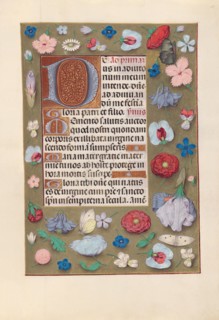 Ad primam
us in adiuto
rium meum
intende. Dñe
ad adiuuan
dũ me festina
Gloria patri et filio.
Memento salutis auctor
quod nostri quondam
corporis ex illibata virgine na
scendo formã sumpseris
Maria mater gratie mater
mie tu nos ab hoste protege in
hora mortis suscipe
Gloria tibi dñe qui natus
es de virgine cum pr̃e et sancto
spũ in sempiterna secula. Amẽ